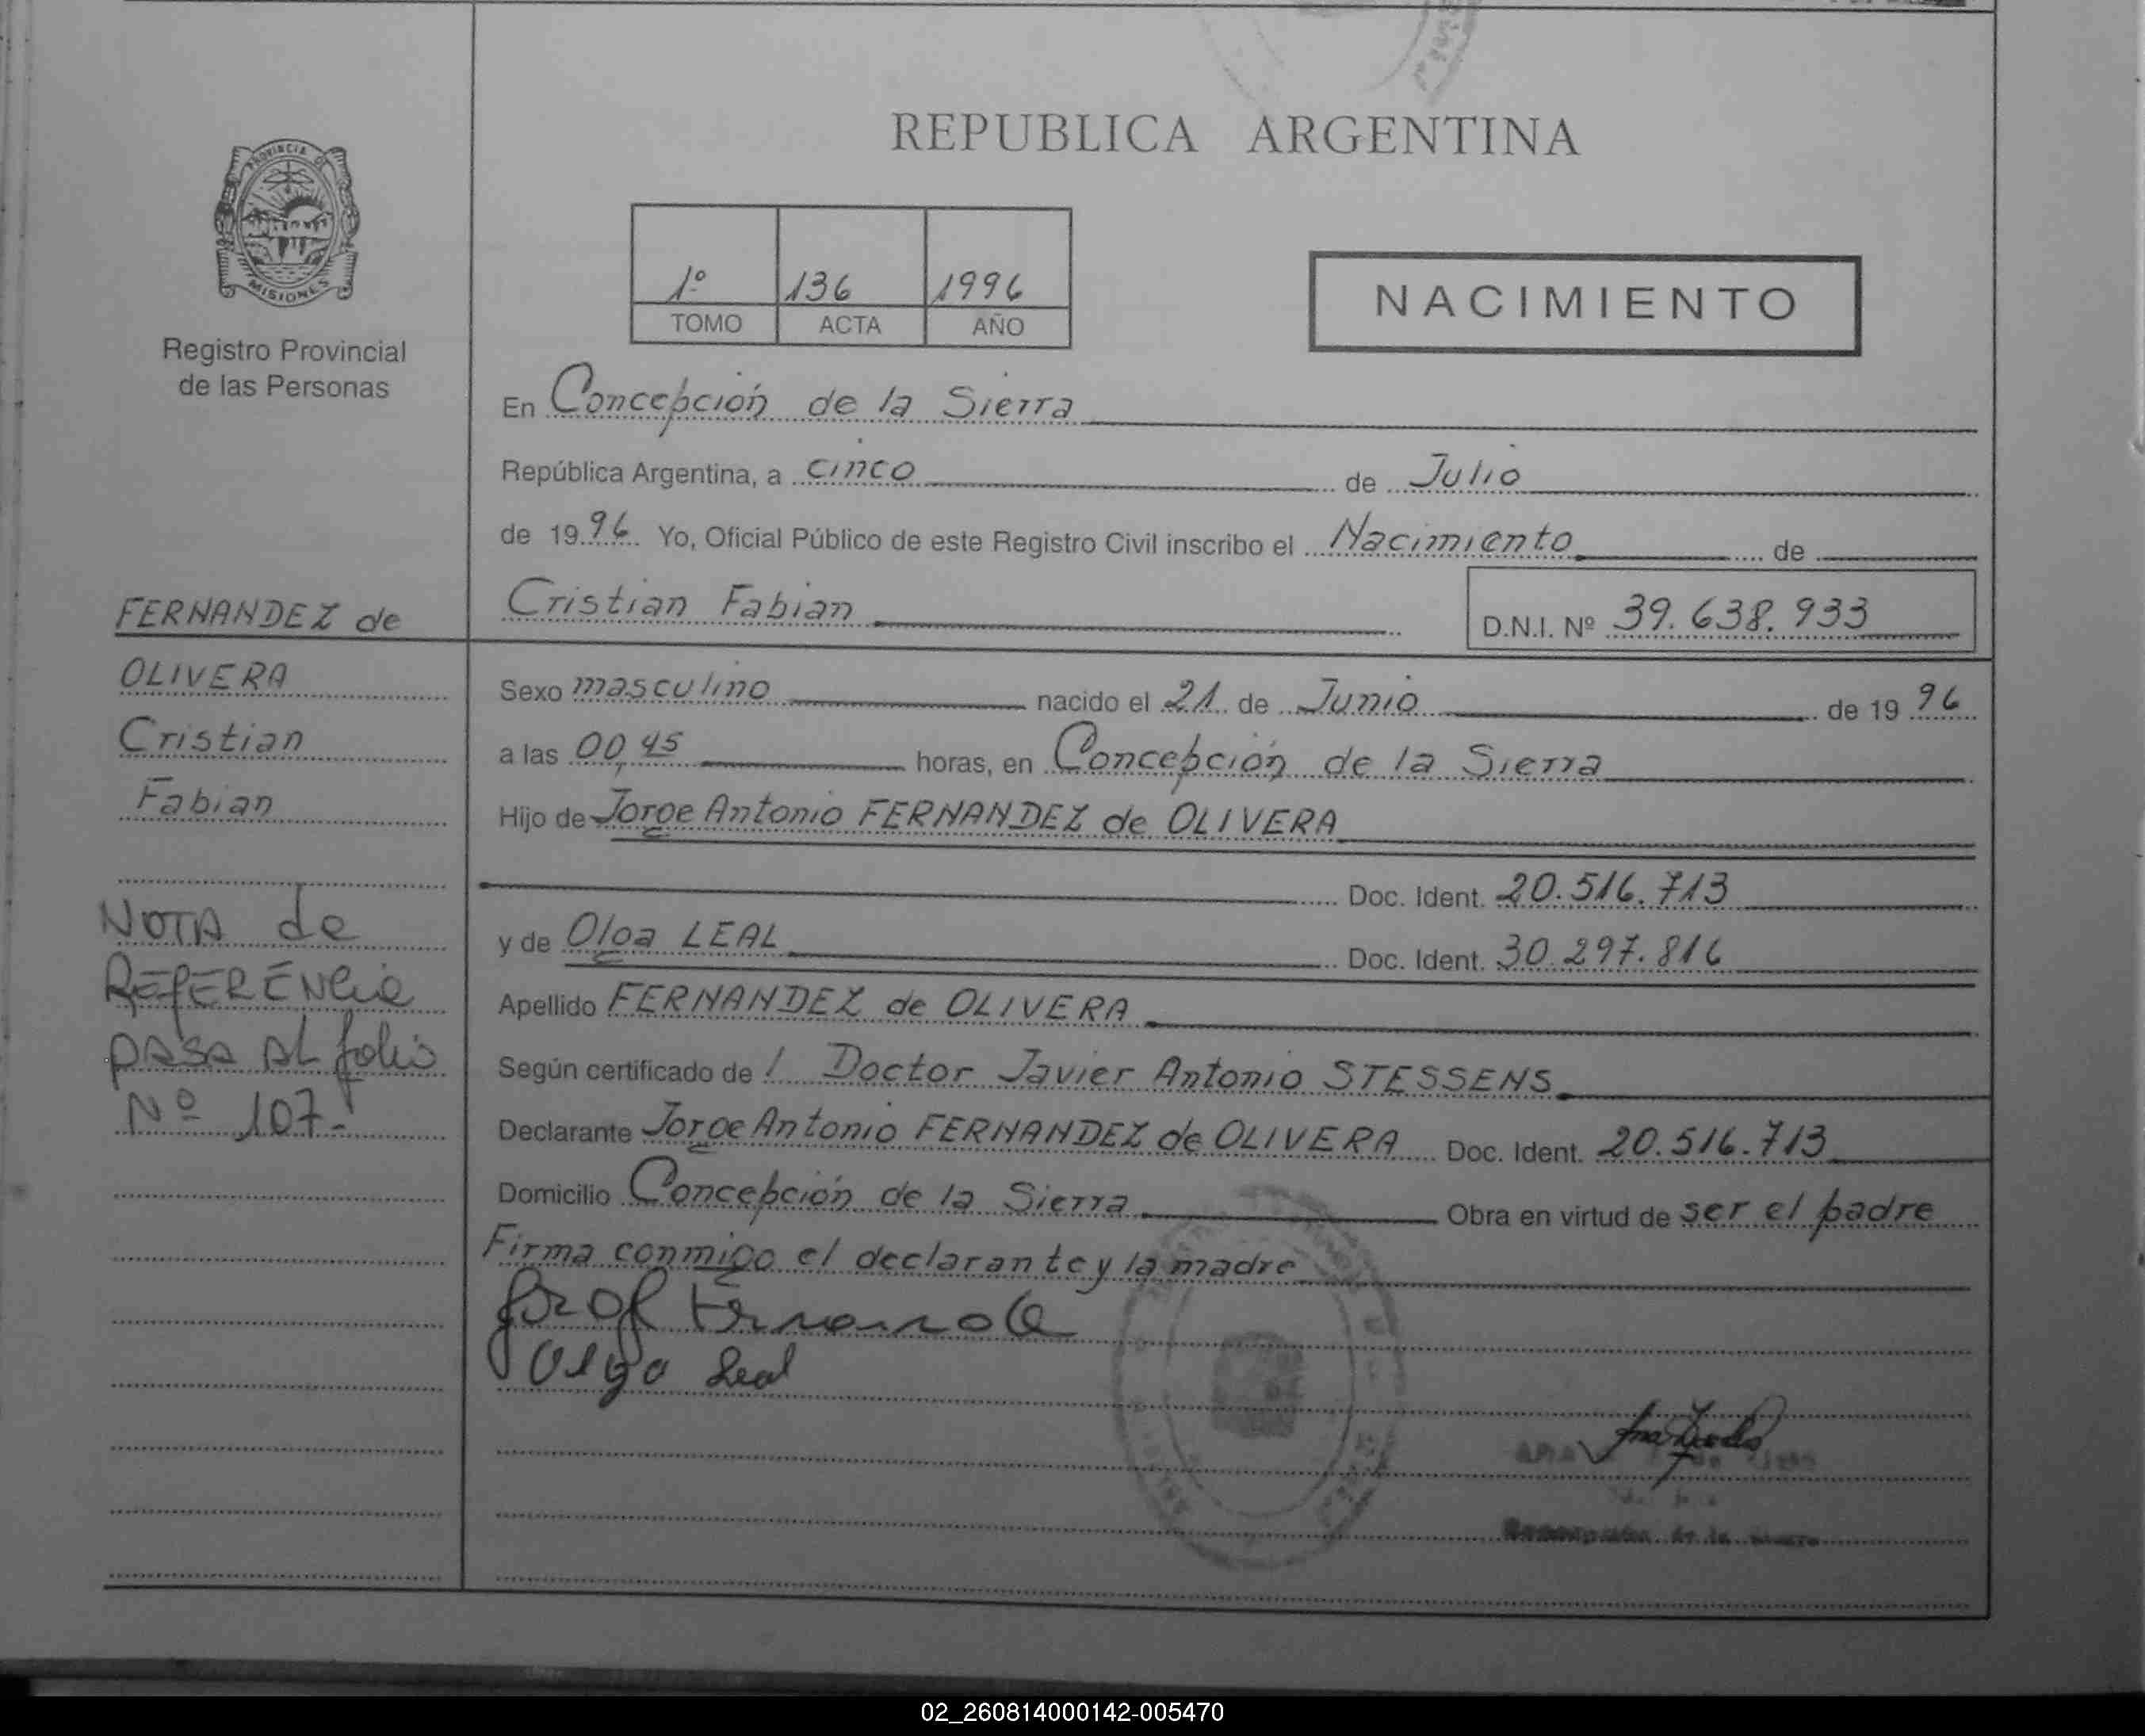 REPUBLICA ARGENTINA
PROVINCIA DE
MISIONES
Registro Provincial
de las Personas
1º 136 1996
TOMO ACTA AÑO
NACIMIENTO
En Concepción de la Sierra
República Argentina, a cinco de Julio
de 1996 Yo, Oficial Público de este Registro Civil inscribo el Nacimiento de
Cristian Fabian D.N.I. Nº 39.638.933
FERNANDEZ de
OLIVERA
Cristian
Fabian
NOTA de
REFERENCIA
PASA AL folio
Nº 107.-
Sexo masculino nacido el 21 de Junio de 1996
a las 00,45 horas, en Concepción de la Sierra
Hijo de Jorge Antonio FERNANDEZ de OLIVERA
Doc. Ident. 20.516.713
y de Olga LEAL Doc. Ident. 30.297.816
Apellido FERNANDEZ de OLIVERA
Según certificado de / Doctor Javier Antonio STESSENS
Declarante Jorge Antonio FERNANDEZ de OLIVERA Doc. Ident. 20.516.713
Domicilio Concepción de la Sierra Obra en virtud de ser el padre
Firma conmigo el declarante y la madre
Olga Leal
02_260814000142-005470